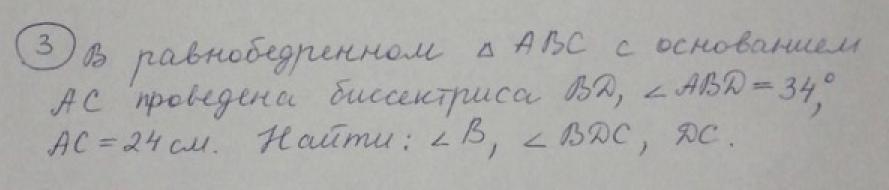 3 В равнобедренном △ ABC с основанием
AC проведена биссектриса BD, ∠ABD = 34°,
AC = 24 см. Найти: ∠B, ∠BDC, DC.